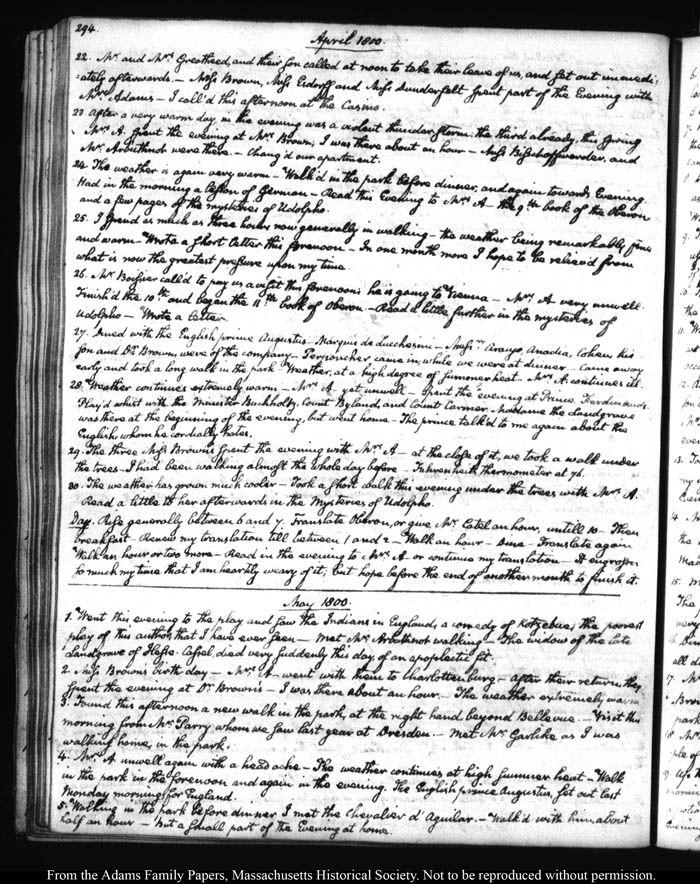 294.
April 1800.
22. Mr. and Mrs. Greatheed, and their son called at noon to take their leave of us, and set out immedi:
:ately afterwards. — Miss Brown, Miss Erdorff and Miss Dunderfelt spent part of the Evening with
Mrs. Adams — I call'd this afternoon at the Casino.
23. After a very warm day, in the evening was a violent thunder storm: the third already, this spring
Mrs. A. spent the evening at Mrs. Brown's; I was there about an hour — Miss Bischoffswerder, and
Mr. Arbuthnot were there. — Chang'd our apartment.
24. The weather is again very warm — Walk'd in the park before dinner, and again towards Evening.
Had in the morning a lesson of German — Read this Evening to Mrs. A — the 9th. book of the Oberon
and a few pages of the mysteries of Udolpho.
25. I spend as much as three hours now generally in walking — the weather being remarkably fine
and warm — Wrote a short letter this forenoon — In one month more I hope to be reliev'd from
what is now the greatest pressure upon my time.
26. Mr. Boissier call'd to pay us a visit this forenoon; he is going to Vienna — Mrs. A very unwell.
Finish'd the 10th. and began the 11th. book of Oberon — Read a little further in the mysteries of
Udolpho — Wrote a letter.
27. Dined with the English prince Augustus — Marquis de Lucchesini — Messrs. Araujo, Anadia, Cohen his
son and Dr. Brown, were of the company — Perponcher came in, while we were at dinner — Came away
early and took a long walk in the park — Weather, at a high degree of summer heat — Mrs. A. continues ill.
28. Weather continues extremely warm — Mrs. A yet unwell — Spent the evening at Prince Ferdinand's.
Play'd whist with the Minister Buchholtz, Count Byland, and Count Carmer. Madame the Landgrave
was there at the beginning of the evening, but went home — The prince talk'd to me again about the
English, whom he cordially hates.
29. The three Miss Browns spent the evening with Mrs. A — at the close of it, we took a walk under
the trees — I had been walking almost the whole day before — Fahrenheit's thermometer at 76.
30. The weather has grown much cooler — Took a short walk this evening under the trees with Mrs. A.
Read a little to her afterwards in the Mysteries of Udolpho.
Day. Rise generally between 6 and 7. Translate Oberon, or give Mr. Catel an hour, untill 10. Then
breakfast — Renew my translation till between 1 and 2 — Walk an hour — Dine — Translate again
Walk an hour or two more — Read in the evening to Mrs. A or continue my translation — It engrosses
so much my time that I am heartily weary of it; but hope before the end of another month to finish it.
May 1800.
1. Went this evening to the play and saw the Indians in England, a comedy of Kotzebue; the poorest
play of this author, that I have ever seen — Met Mr. Arbuthnot walking — The widow of the late
Landgrave of Hesse-Cassel, died very suddenly this day, of an apoplectic fit.
2. Miss Brown's birth day — Mrs. A. went with them to Charlottenburg — after their return, they
spent the evening at Dr. Brown's — I was there about an hour. — The weather extremely warm
3. Found this afternoon a new walk in the park, at the right hand beyond Bellevue. — Visit this
morning from Mr. Parry, whom we saw last year at Dresden. — Met Mr. Garlike as I was
walking home, in the park.
4. Mrs. A unwell again with a head ache — The weather continues at high summer heat — Walk
in the park in the forenoon and again in the evening. The English prince Augustus, set out last
Monday morning for England.
5. Walking in the park before dinner I met the Chevalier d'Aguilar. — Walk'd with him, about
half an hour — But a small part of the Evening at home.
From the Adams Family Papers, Massachusetts Historical Society. Not to be reproduced without permission.